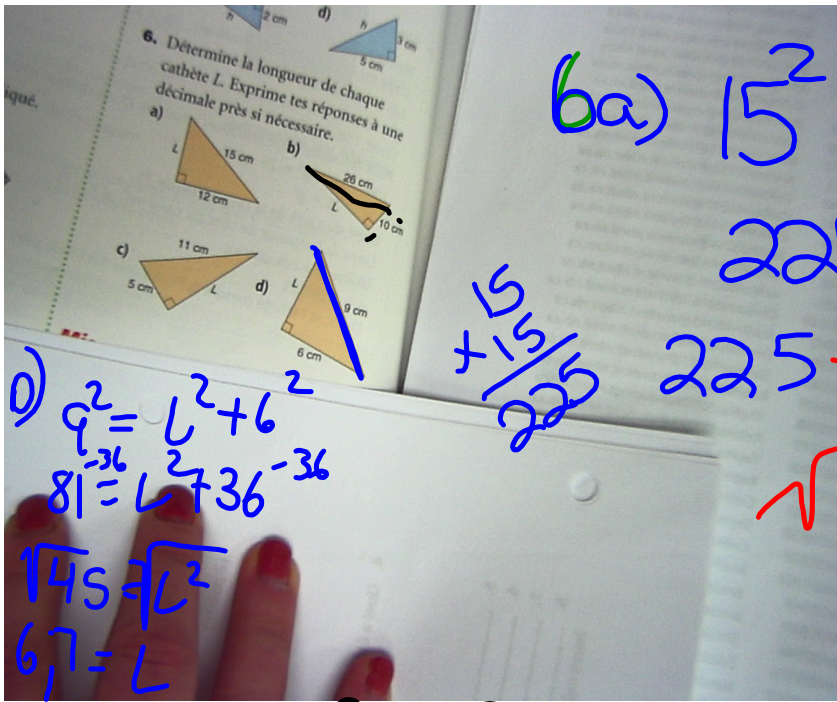 2 cm
d)
h
3 cm
5 cm
iqué.
6. Détermine la longueur de chaque
cathète L. Exprime tes réponses à une
décimale près si nécessaire.
a)
L
15 cm
12 cm
b)
26 cm
L
10 cm
c)
11 cm
5 cm
L
d)
L
9 cm
6 cm
6a) 15²
22
15
+15
225
225
D) 9² = L² + 6²
81⁻³⁶ = L² + 36⁻³⁶
√45 = √L²
6,7 = L